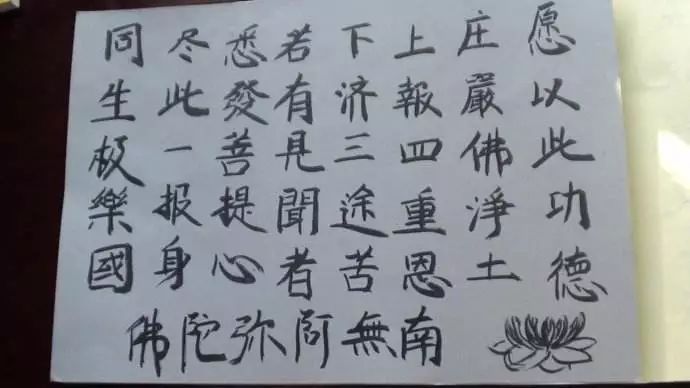 愿以此功德
庄嚴佛淨土
上報四重恩
下济三途苦
若有見聞者
悉發菩提心
尽此一报身
同生极樂國
南無阿弥陀佛